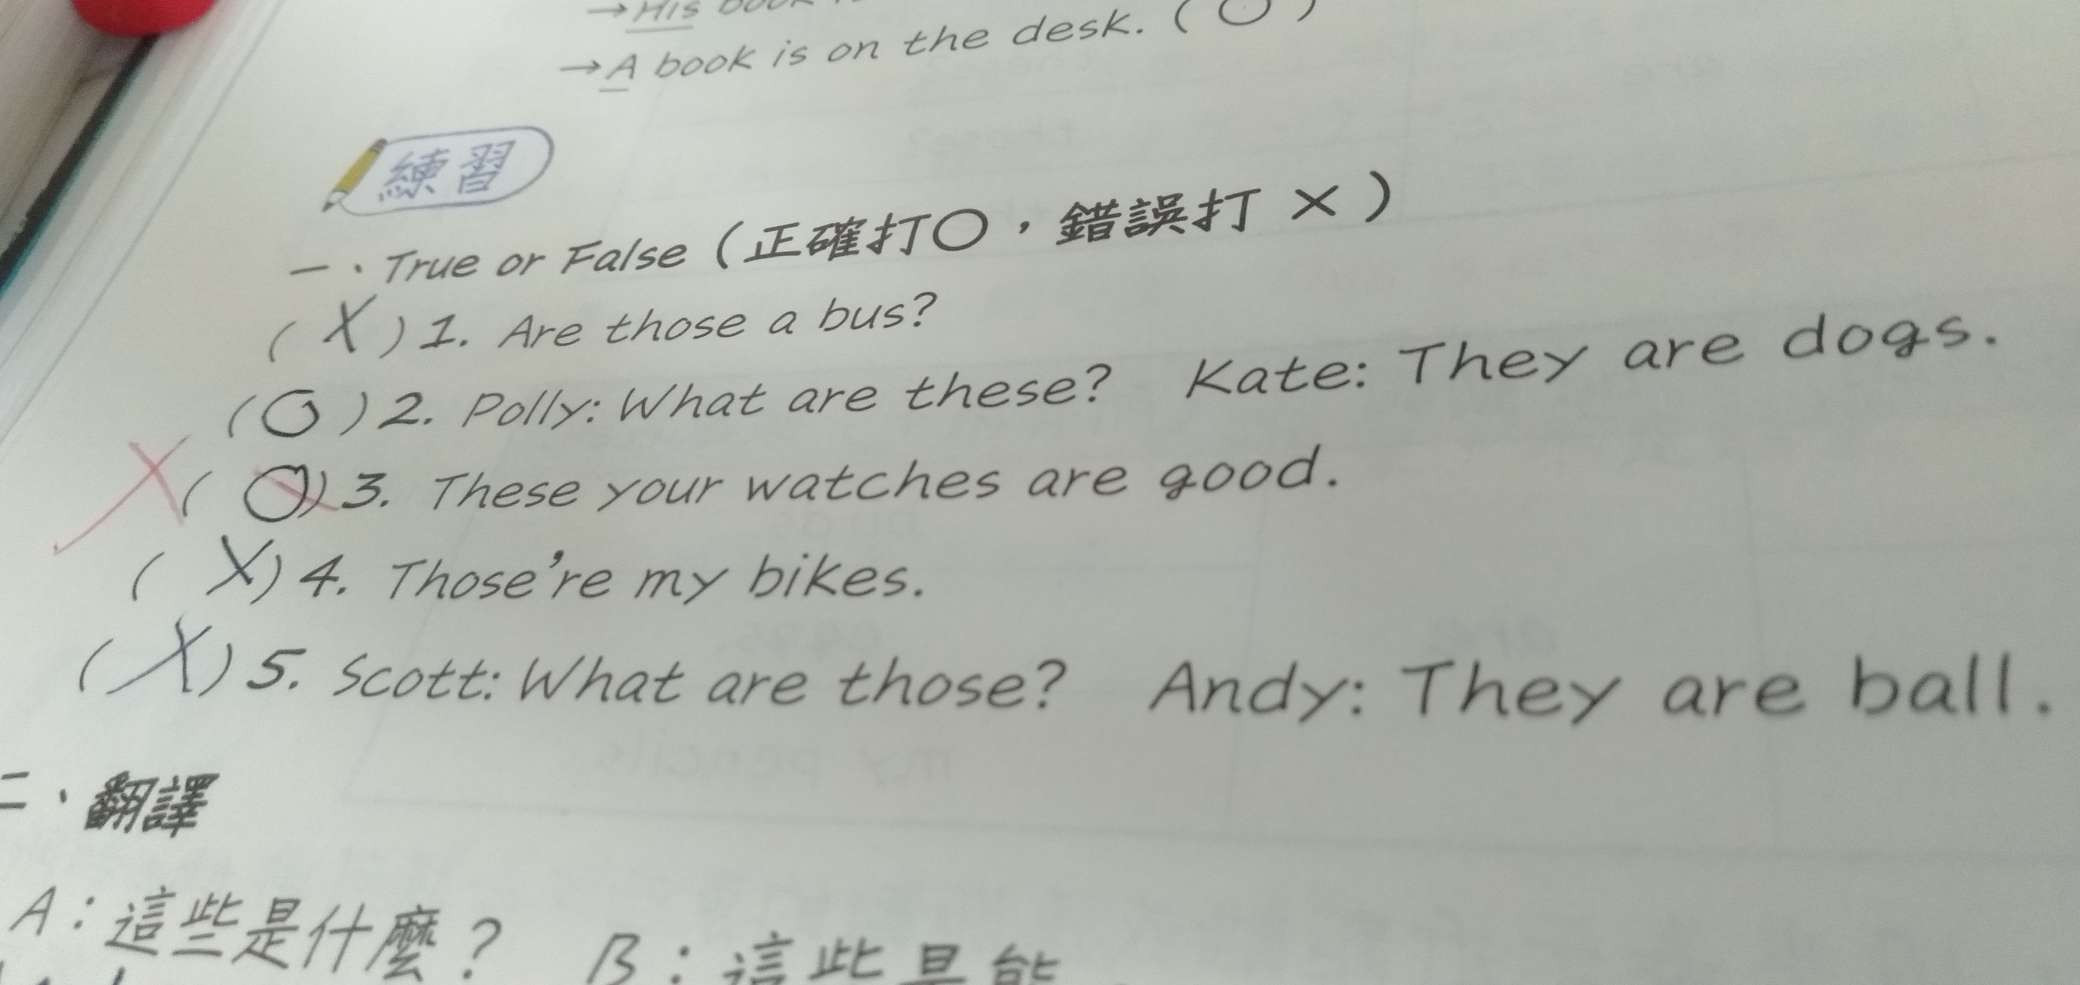 →His book
→A book is on the desk. (○)
練習
一、True or False（正確打○，錯誤打 ×）
( X ) 1. Are those a bus?
( ○ ) 2. Polly: What are these? Kate: They are dogs.
X ( ○ ) 3. These your watches are good.
( X ) 4. Those're my bikes.
( X ) 5. Scott: What are those? Andy: They are ball.
二、翻譯
A：這些是什麼？ B：這些是